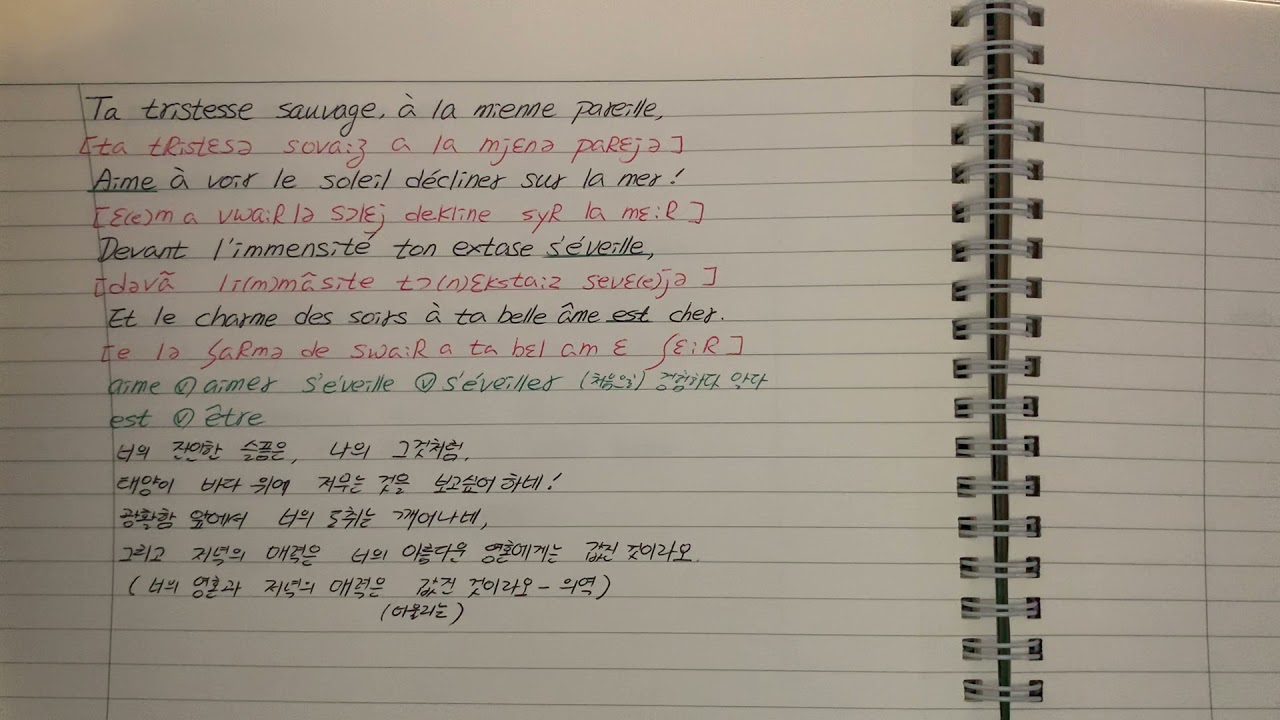 Ta tristesse sauvage, à la mienne pareille,
[ta tRistɛsə sova:ʒ a la mjɛnə paRɛjə]
Aime à voir le soleil décliner sur la mer!
[ɛ(e)m a vwa:R lə sɔlɛj dekline syR la mɛ:R]
Devant l'immensité ton extase s'éveille,
[dəvɑ̃ li(m)mɑ̃site tɔ(n)ɛksta:z sevɛ(e)jə]
Et le charme des soirs à ta belle âme est cher.
[e lə ʃaRmə de swa:R a ta bɛl am ɛ ʃɛ:R]
aime ⓥ aimer s'éveille ⓥ s'éveiller (처음으로) 경험하다, 알다
est ⓥ être
너의 잔인한 슬픔은, 나의 그것처럼,
태양이 바다 위에 저무는 것을 보고싶어 하네!
광활함 앞에서 너의 도취는 깨어나네,
그리고 저녁의 매력은 너의 아름다운 영혼에게는 값진 것이라오.
(너의 영혼과 저녁의 매력은 값진 것이라오 - 의역)
(어울리는)